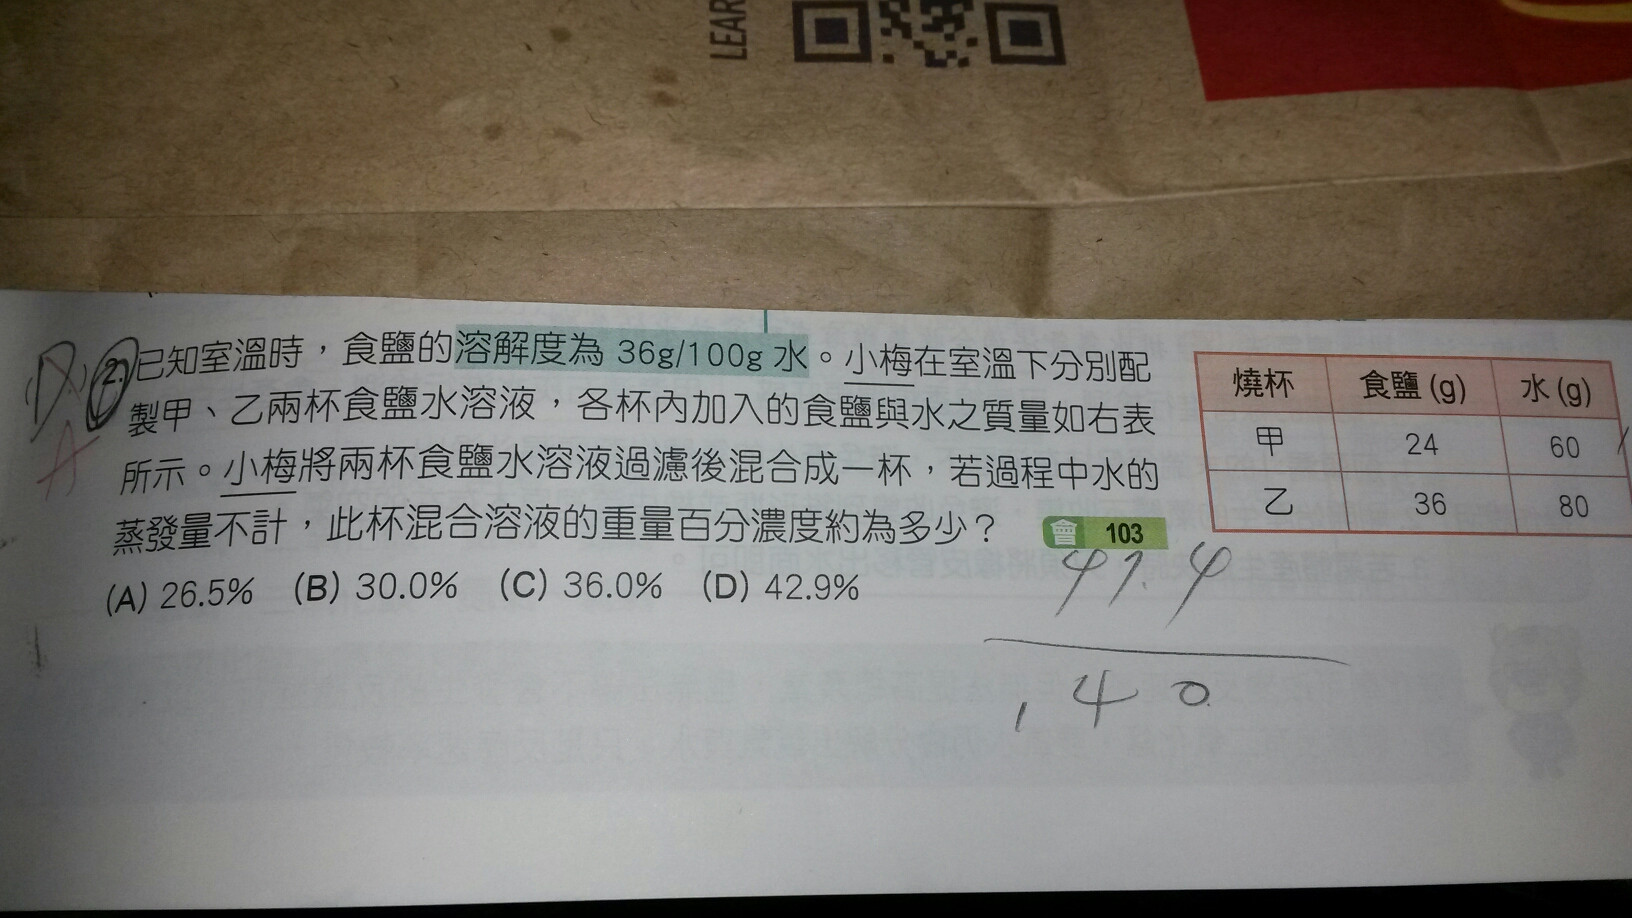 LEAR
(D) 2. 已知室溫時，食鹽的溶解度為 36g/100g 水。小梅在室溫下分別配
製甲、乙兩杯食鹽水溶液，各杯內加入的食鹽與水之質量如右表
所示。小梅將兩杯食鹽水溶液過濾後混合成一杯，若過程中水的
蒸發量不計，此杯混合溶液的重量百分濃度約為多少？ 會 103
(A) 26.5% (B) 30.0% (C) 36.0% (D) 42.9%
A
燒杯 食鹽 (g) 水 (g)
甲 24 60
乙 36 80
140